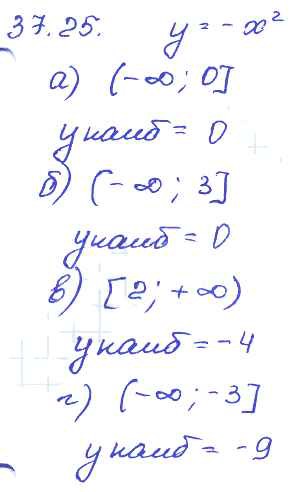 37.25. y = - x²
а) (-∞; 0]
y наиб = 0
б) (-∞; 3]
y наиб = 0
в) [2; +∞)
y наиб = -4
г) (-∞; -3]
y наиб = -9